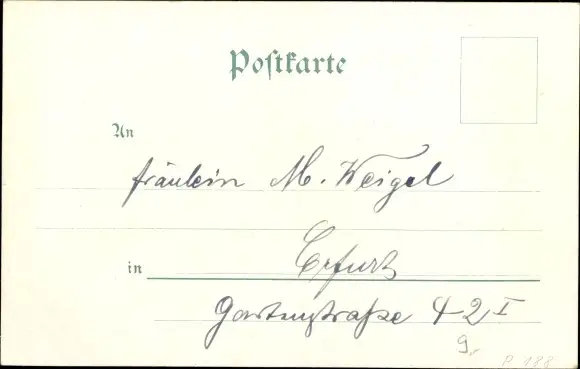 Postkarte
An
Fräulein M. Weigel
in Erfurt
Gartenstraße 42 I
g.
P 188